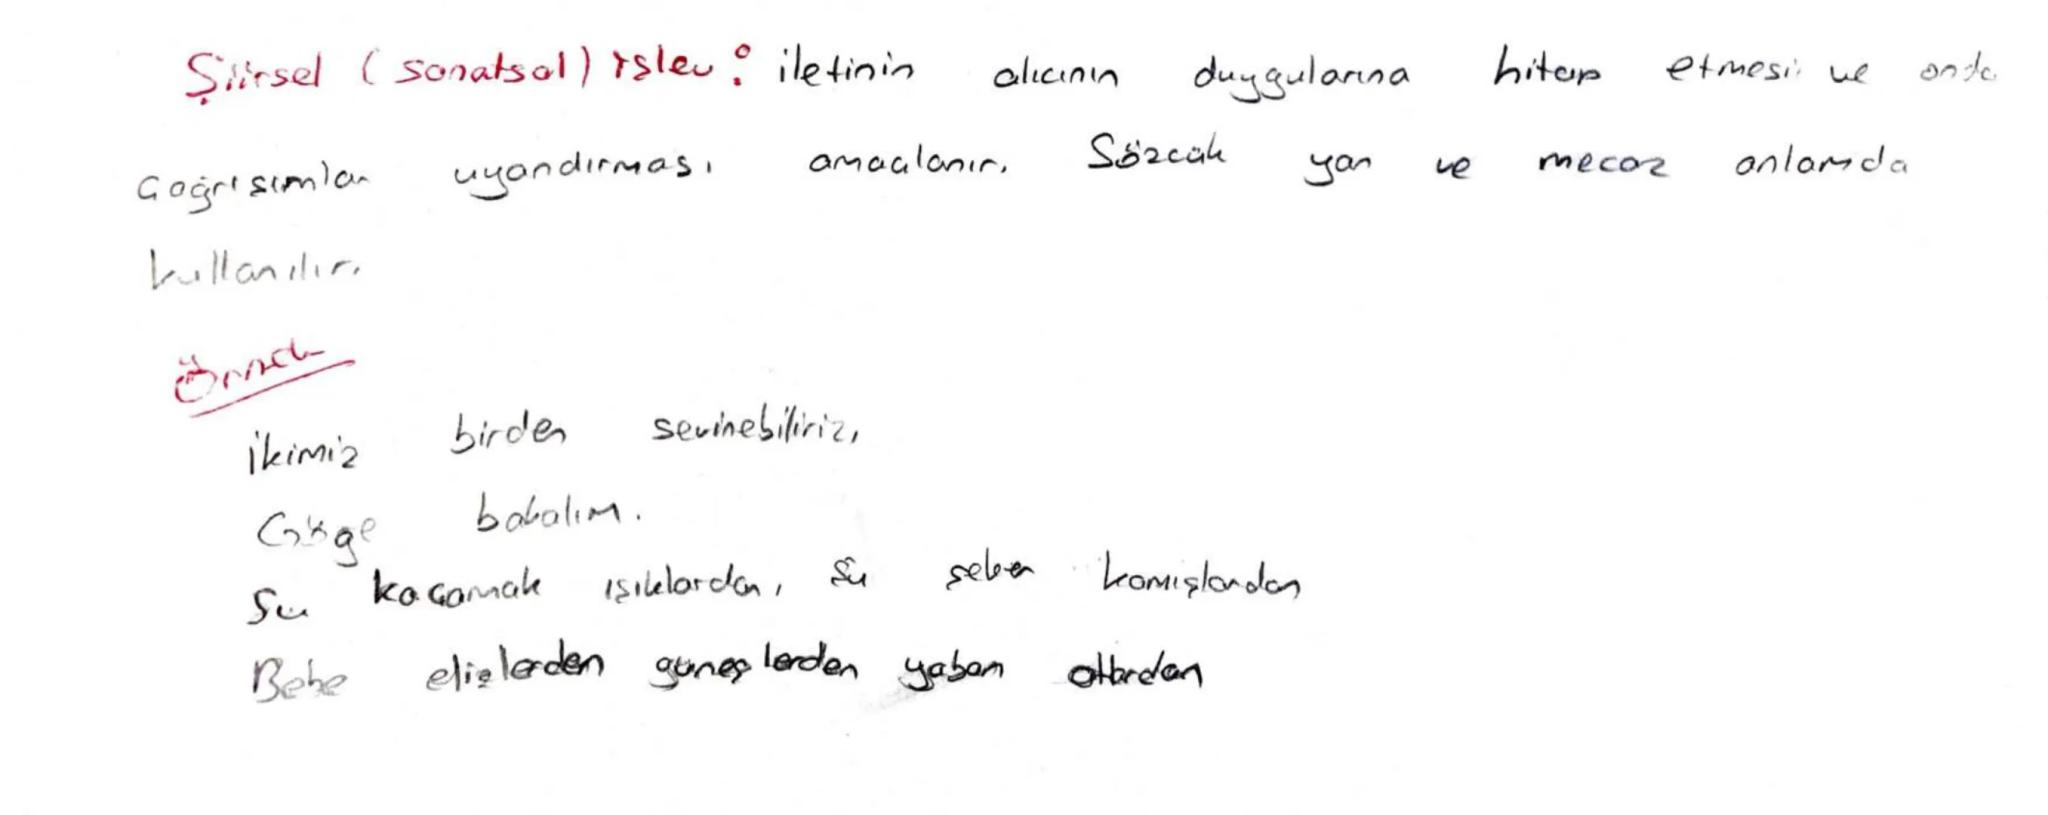 Şiirsel (sanatsal) işlev: iletinin alıcının duygularına hitap etmesi ve onda
çağrışımlar uyandırması amaçlanır. Sözcük yan ve mecaz anlamda
kullanılır.
Örnek
İkimiz birden sevinebiliriz,
Göğe bakalım.
Şu kaçamak ışıklardan, şu şeker kamışlardan
Bebe dişlerden güneşlerden yaban otlardan